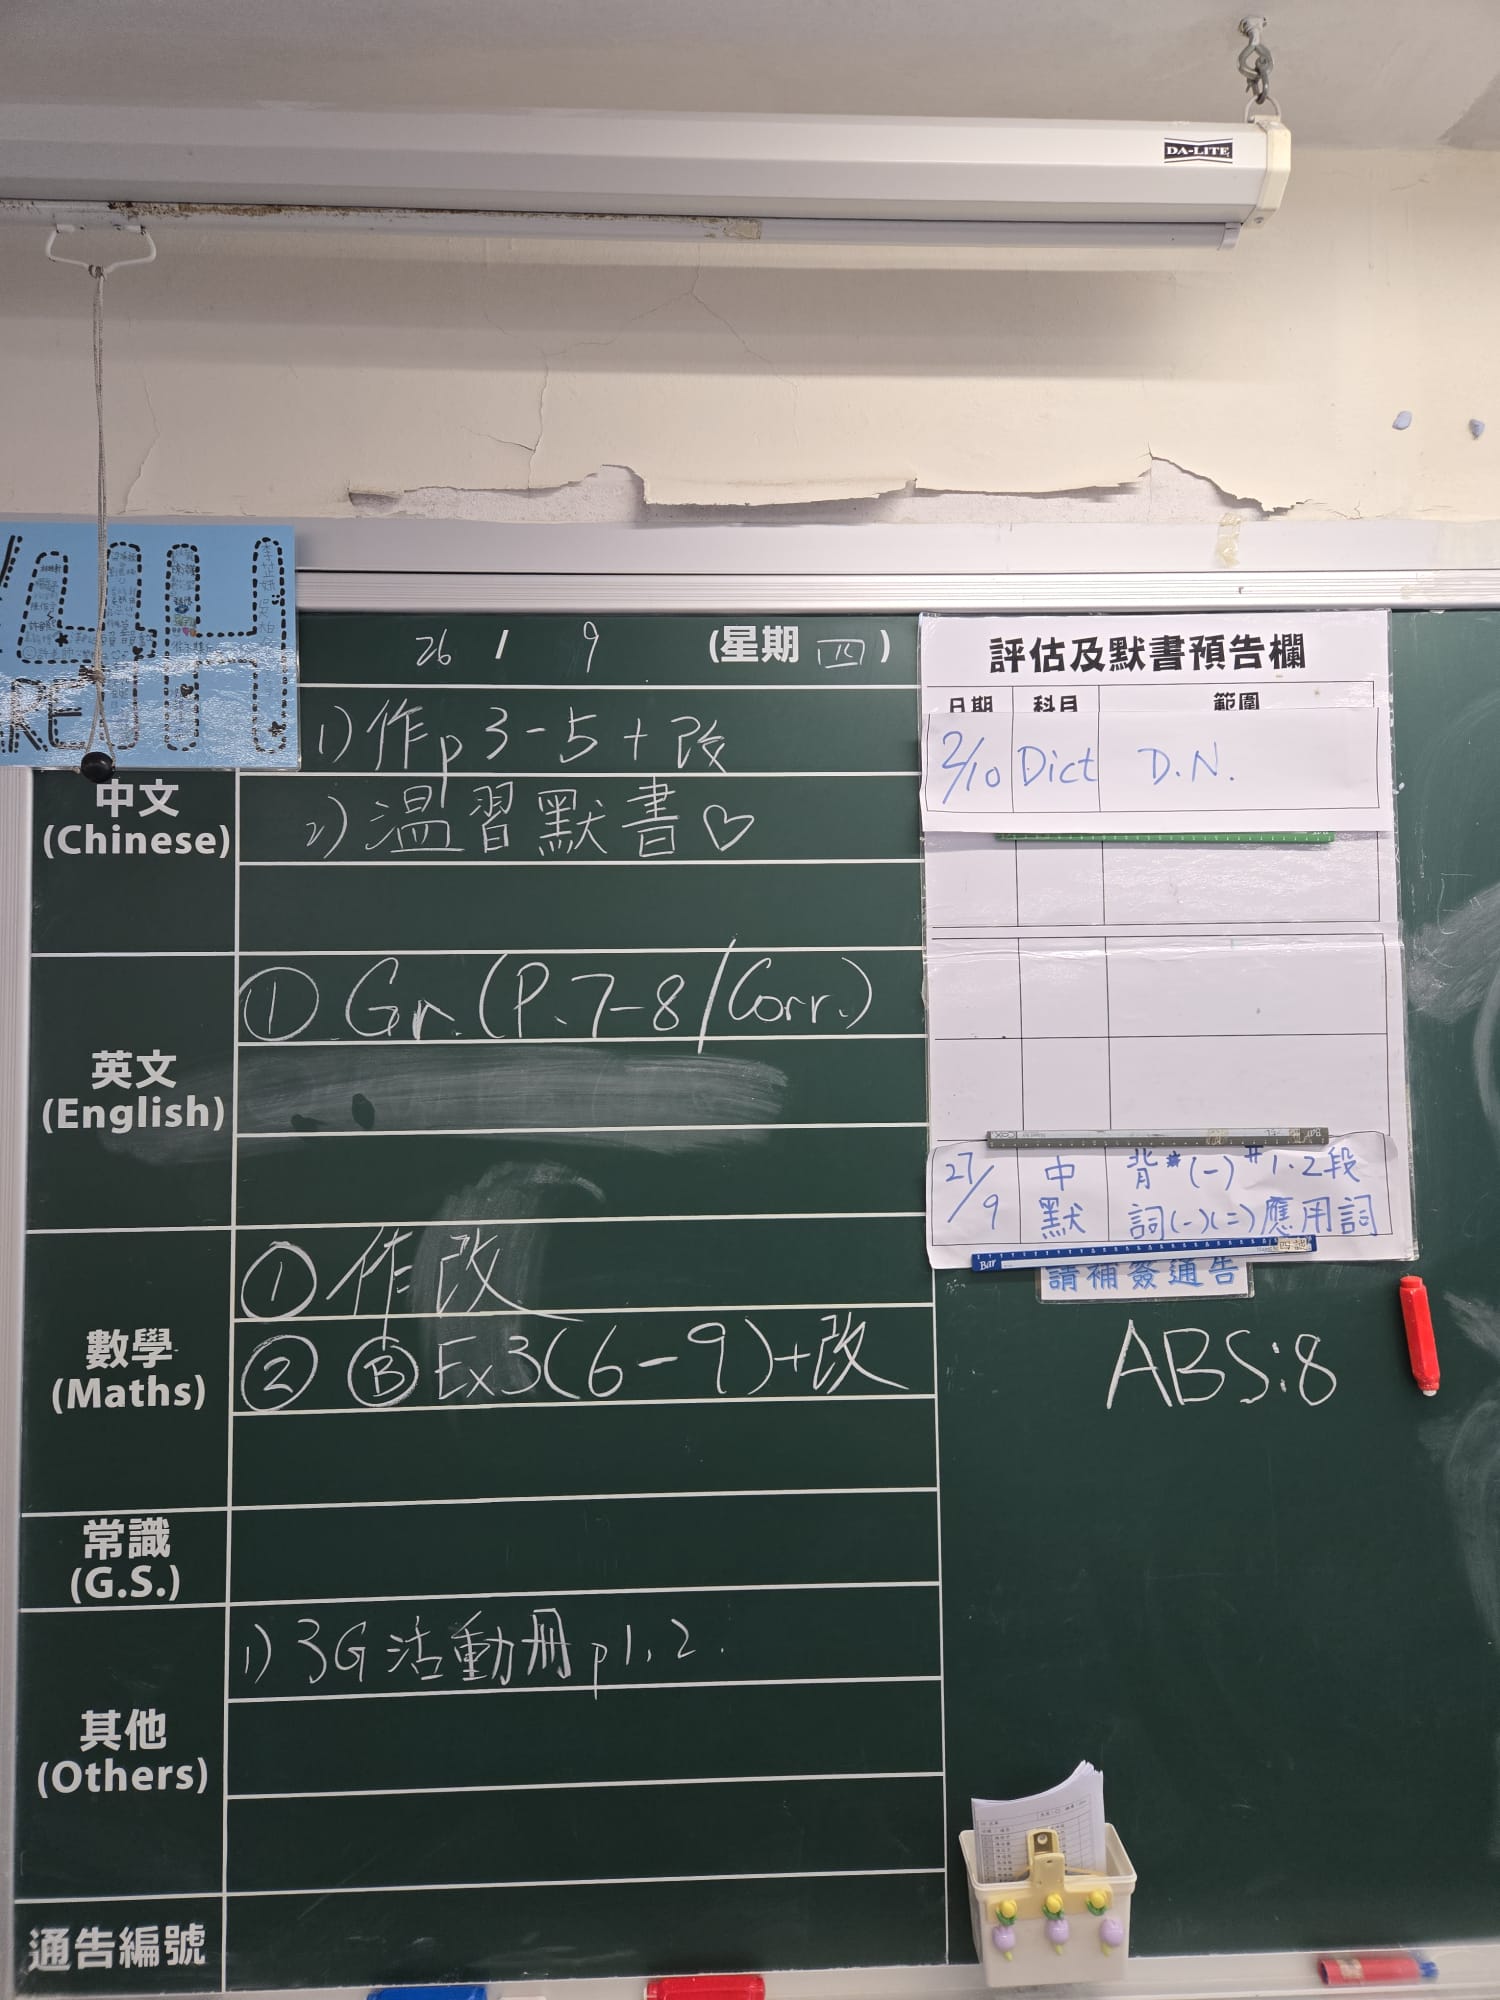 DA-LITE
26 / 9 (星期 四)
中文
(Chinese)
1) 作 p 3-5 + 改
2) 温習默書♡
英文
(English)
① Gr. (P. 7-8 / Corr.)
數學
(Maths)
① 作改
② Ⓑ Ex3(6-9)+改
常識
(G.S.)
其他
(Others)
1) 3G 活動冊 p1, 2.
通告編號
評估及默書預告欄
日期 科目 範圍
2/10 Dict D.N.
27/9 中默 背*(一)#1.2段
詞(一)(二)應用詞
請補簽通告
ABS:8